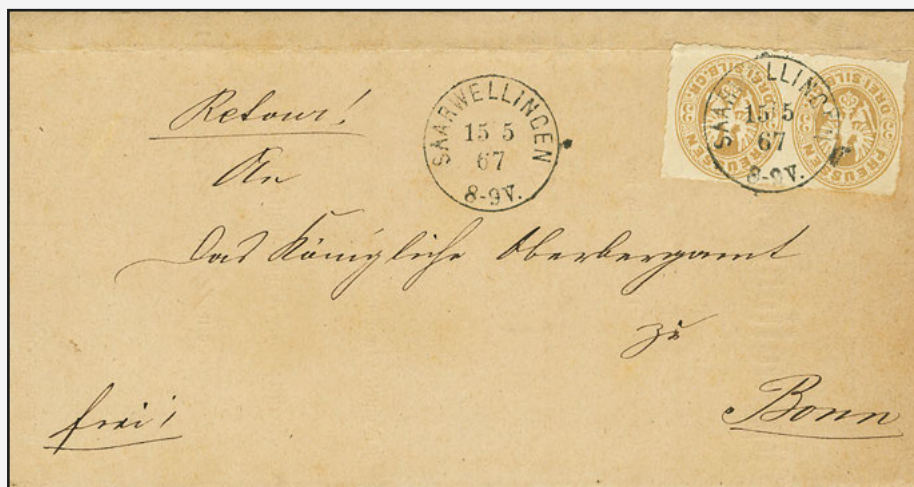 Retour!
SAARWELLINGEN
15 5
67
8-9V.
PREUSSEN DREI SILB.GR.
SAARWELLINGEN
15 5
67
8-9V.
PREUSSEN DREI SILB.GR.
An
Das Königliche Oberbergamt
zu
Bonn
frei!